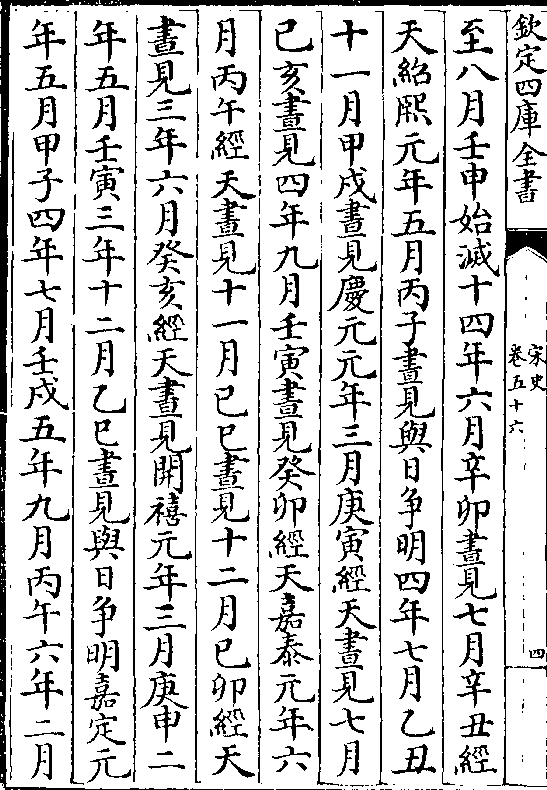 欽定四庫全書
宋史
卷五十六
四
至八月壬申始滅十四年六月辛卯晝見七月辛丑經
天紹熙元年五月丙子晝見與日争明四年七月乙丑
十一月甲戌晝見慶元元年三月庚寅經天晝見七月
己亥晝見四年九月壬寅晝見癸卯經天嘉泰元年六
月丙午經天晝見十一月己巳晝見十二月己卯經天
晝見三年六月癸亥經天晝見開禧元年三月庚申二
年五月壬寅三年十二月乙巳晝見與日争明嘉定元
年五月甲子四年七月壬戌五年九月丙午六年二月